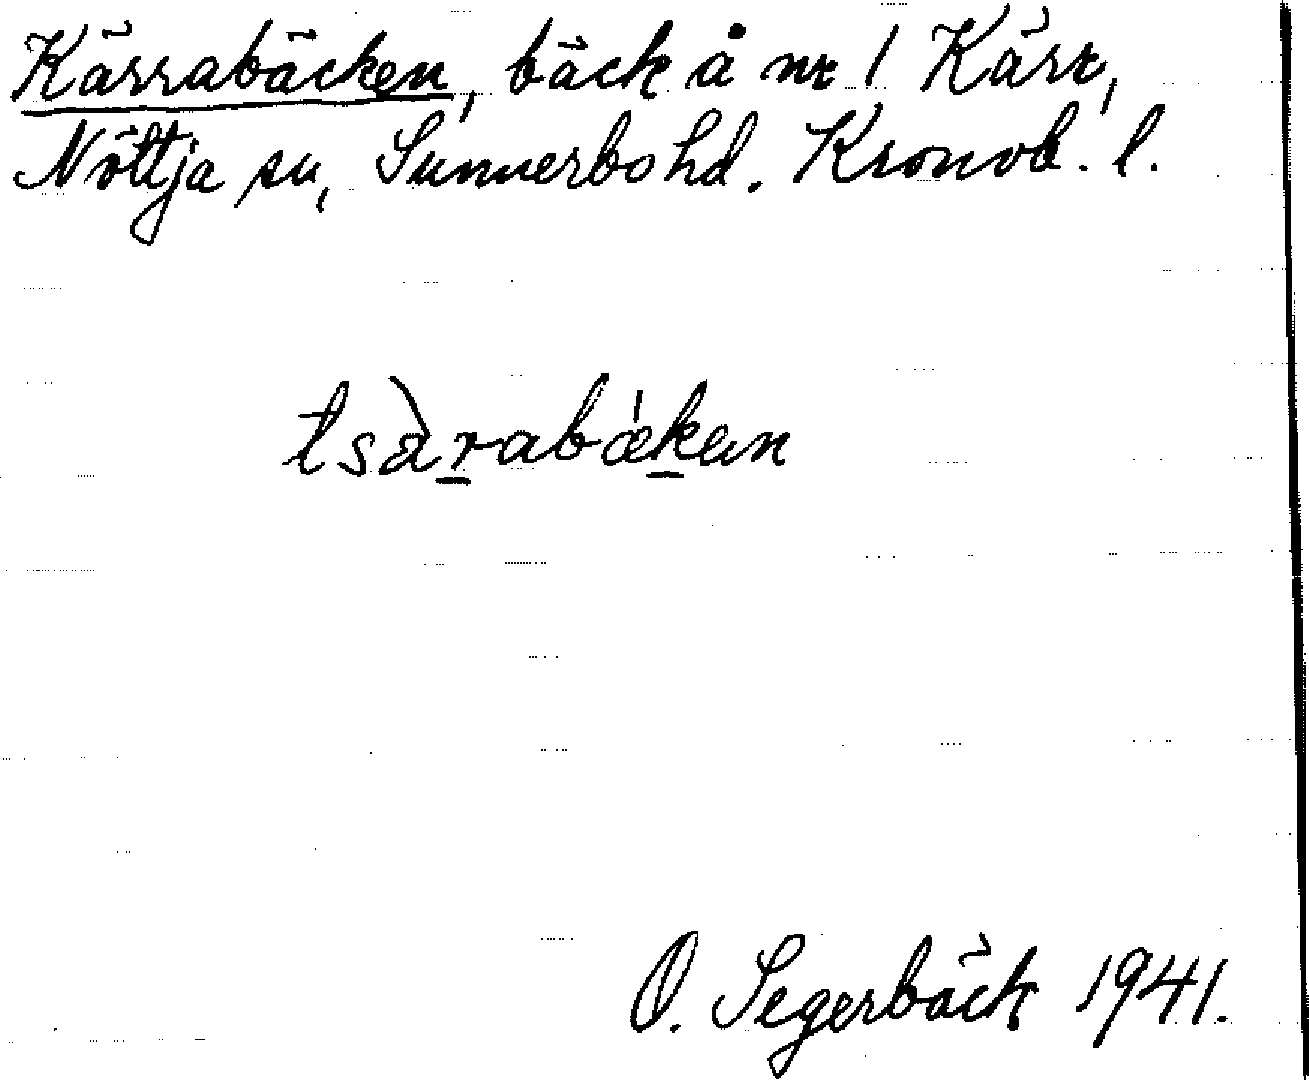 Kärrabäcken, bäck å nr 1 Kärr,
Nöttja sn, Sunnerbo hd. Kronob. l.
tsàrabækan
O. Segerbäck 1941.